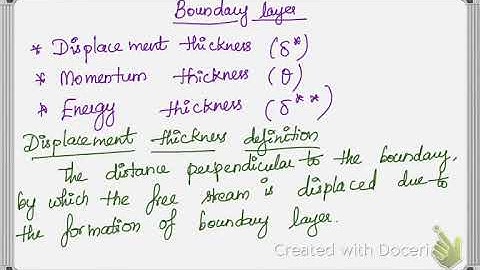 Boundary layer
* Displacement thickness (δ*)
* Momentum thickness (θ)
* Energy thickness (δ**)
Displacement thickness definition
The distance perpendicular to the boundary,
by which the free stream is displaced due to
the formation of boundary layer.
Created with Doceri